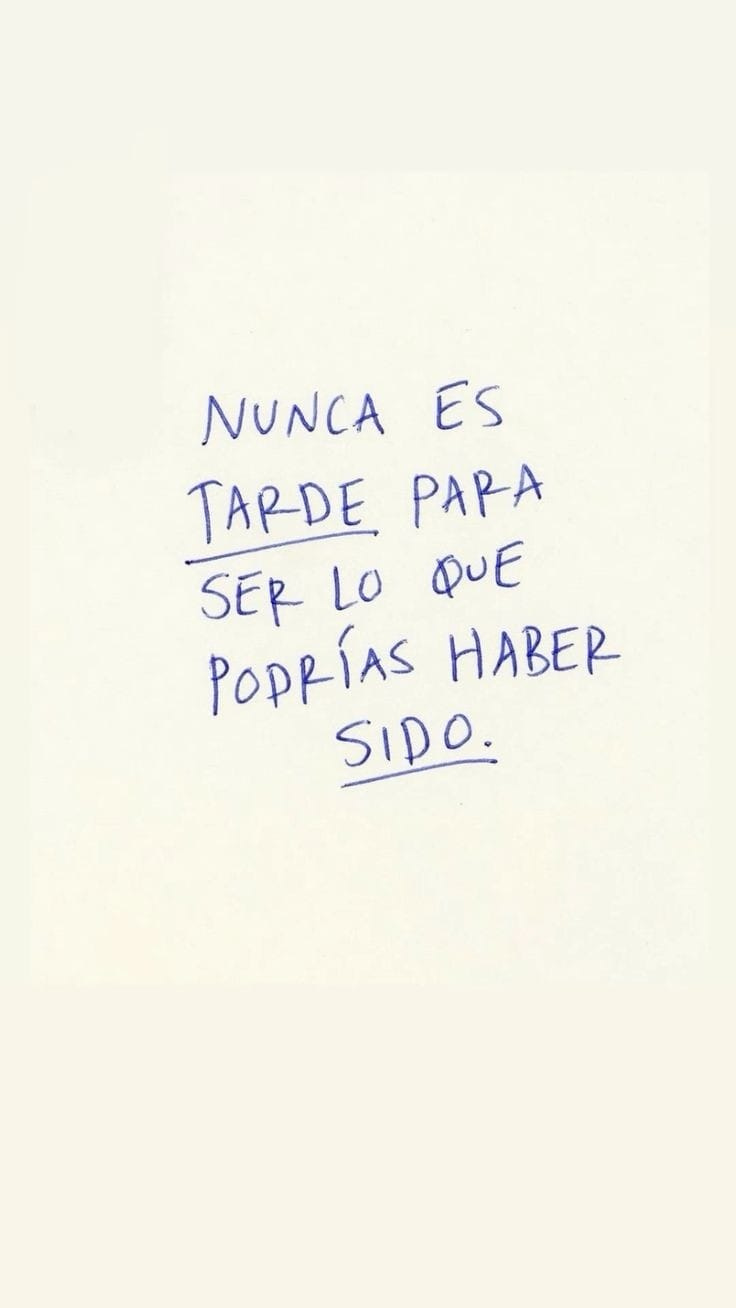 NUNCA ES
TARDE PARA
SER LO QUE
PODRÍAS HABER
SIDO.